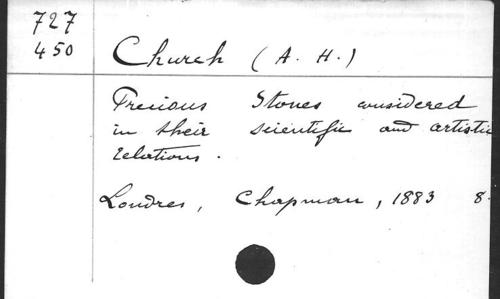 727
450
Church (A. H.)
Precious Stones considered
in their scientific and artistic
relations.
Londres, Chapman, 1883 8.